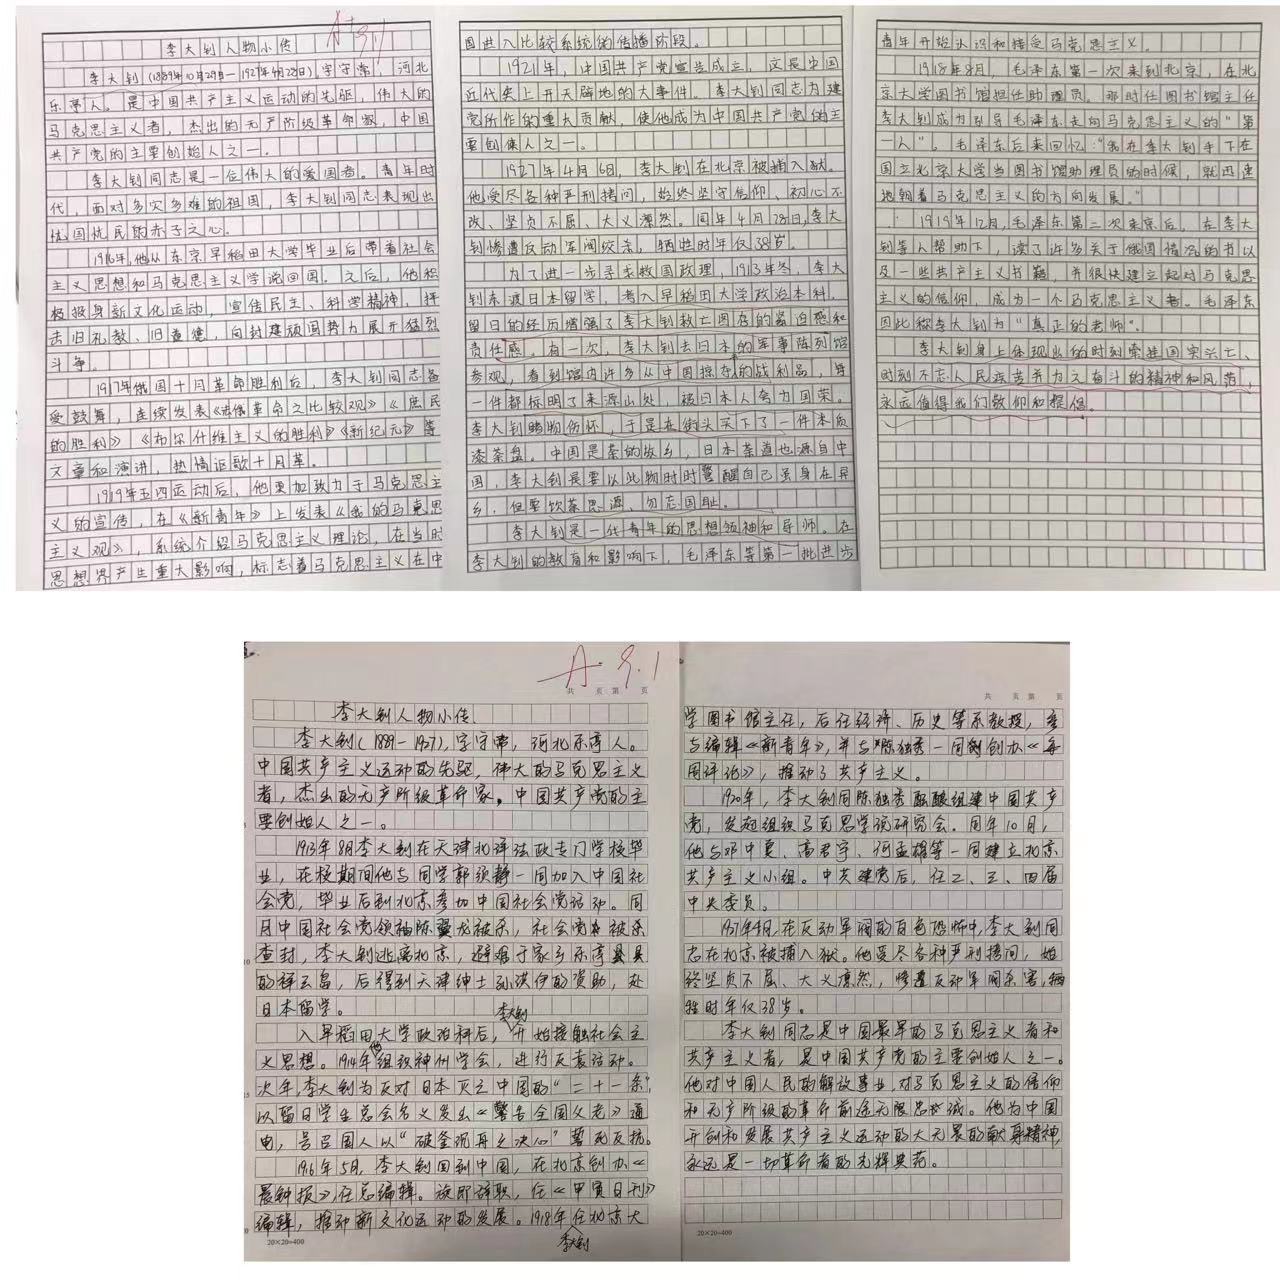 A+ 9.1
李大钊人物小传
李大钊(1889年10月29日—1927年4月28日),字守常,河北
乐亭人。是中国共产主义运动的先驱,伟大的
马克思主义者,杰出的无产阶级革命家,中国
共产党的主要创始人之一。
李大钊同志是一位伟大的爱国者。青年时
代,面对多灾多难的祖国,李大钊同志表现出
忧国忧民的赤子之心。
1916年,他从东京早稻田大学毕业后带着社会
主义思想和马克思主义学说回国。之后,他积
极投身新文化运动,宣传民主、科学精神,抨
击旧礼教、旧道德,向封建顽固势力展开猛烈
斗争。
1917年俄国十月革命胜利后,李大钊同志备
受鼓舞,连续发表《法俄革命之比较观》《庶民
的胜利》《布尔什维主义的胜利》《新纪元》等
文章和演讲,热情讴歌十月革。
1919年五四运动后,他更加致力于马克思主
义的宣传,在《新青年》上发表《我的马克思
主义观》,系统介绍马克思主义理论,在当时
思想界产生重大影响,标志着马克思主义在中
国进入比较系统的传播阶段。
1921年,中国共产党宣告成立,这是中国
近代史上开天辟地的大事件。李大钊同志为建
党所作的重大贡献,使他成为中国共产党的主
要创始人之一。
1927年4月6日,李大钊在北京被捕入狱。
他受尽各种严刑拷问,始终坚守信仰、初心不
改、坚贞不屈、大义凛然。同年4月28日,李大
钊惨遭反动军阀绞杀,牺牲时年仅38岁。
为了进一步寻求救国政理,1913年冬,李大
钊东渡日本留学,考入早稻田大学政治本科,
留日的经历增强了李大钊救亡图存的紧迫感和
责任感。有一次,李大钊去日本的军事陈列馆
参观,看到馆内许多从中国掠夺的战利品,每
一件都标明了来源出处,被日本人会为国荣。
李大钊睹物伤怀,于是在街头买下了一件本质
漆茶盘。中国是茶的故乡,日本茶道也源自中
国,李大钊是要以此物时时警醒自己虽身在异
乡,但要饮茶思源、勿忘国耻。
李大钊是一代青年的思想领袖和导师。在
李大钊的教育和影响下,毛泽东等第一批进步
青年开始认识和接受马克思主义。
1918年8月,毛泽东第一次来到北京,在北
京大学图书馆担任助理员。那时任图书馆主任
李大钊成为引导毛泽东走向马克思主义的“第
一人”。毛泽东后来回忆:“我在李大钊手下在
国立北京大学当图书馆助理员的时候,就迅速
地朝着马克思主义的方向发展。”
1919年12月,毛泽东第二次来京后,在李大
钊等人帮助下,读了许多关于俄国情况的书以
及一些共产主义书籍,并很快建立起对马克思
主义的信仰,成为一个马克思主义者。毛泽东
因此称李大钊为“真正的老师”。
李大钊身上体现出的时刻牵挂国家兴亡、
时刻不忘人民疾苦并为之奋斗的精神和风范,
永远值得我们敬仰和提倡。
A- 9.1
共 页 第 页
李大钊人物小传
李大钊(1889-1927),字守常,河北乐亭人。
中国共产主义运动的先驱,伟大的马克思主义
者,杰出的无产阶级革命家,中国共产党的主
要创始人之一。
1913年8月李大钊在天津北洋法政专门学校毕
业,在校期间他与同学郭须静一同加入中国社
会党,毕业后到北京参加中国社会党活动。同
月中国社会党领袖陈翼龙被杀,社会党被
查封,李大钊逃离北京,避难于家乡乐亭县
的祥云岛,后得到天津绅士孙洪伊的资助,赴
日本留学。
入早稻田大学政治科后,李大钊开始接触社会主
义思想。1914年他组织神州学会,进行反袁活动。
次年,李大钊为反对日本灭亡中国的“二十一条”,
以留日学生总会名义发出《警告全国父老》通
电,号召国人以“破釜沉舟之决心”誓死反抗。
1916年5月,李大钊回到中国,在北京创办《
晨钟报》,任总编辑。旋即辞职,任《甲寅日刊》
编辑,推动新文化运动的发展。1918年李大钊任北京大
20×20=400
共 页 第 页
学图书馆主任,后任经济、历史等系教授,参
与编辑《新青年》,并与陈独秀一同创办《每
周评论》,推动了共产主义。
1920年,李大钊同陈独秀酝酿组建中国共产
党,发起组织马克思学说研究会。同年10月,
他与邓中夏、高君宇、何孟雄等一同建立北京
共产主义小组。中共建党后,任二、三、四届
中央委员。
1927年4月,在反动军阀的白色恐怖中,李大钊同
志在北京被捕入狱。他受尽各种严刑拷问,始
终坚贞不屈、大义凛然,惨遭反动军阀杀害,牺
牲时年仅38岁。
李大钊同志是中国最早的马克思主义者和
共产主义者,是中国共产党的主要创始人之一。
他对中国人民的解放事业,对马克思主义的信仰
和无产阶级的革命前途无限忠诚。他为中国
开创和发展共产主义运动的大无畏的献身精神,
永远是一切革命者的光辉典范。
20×20=400